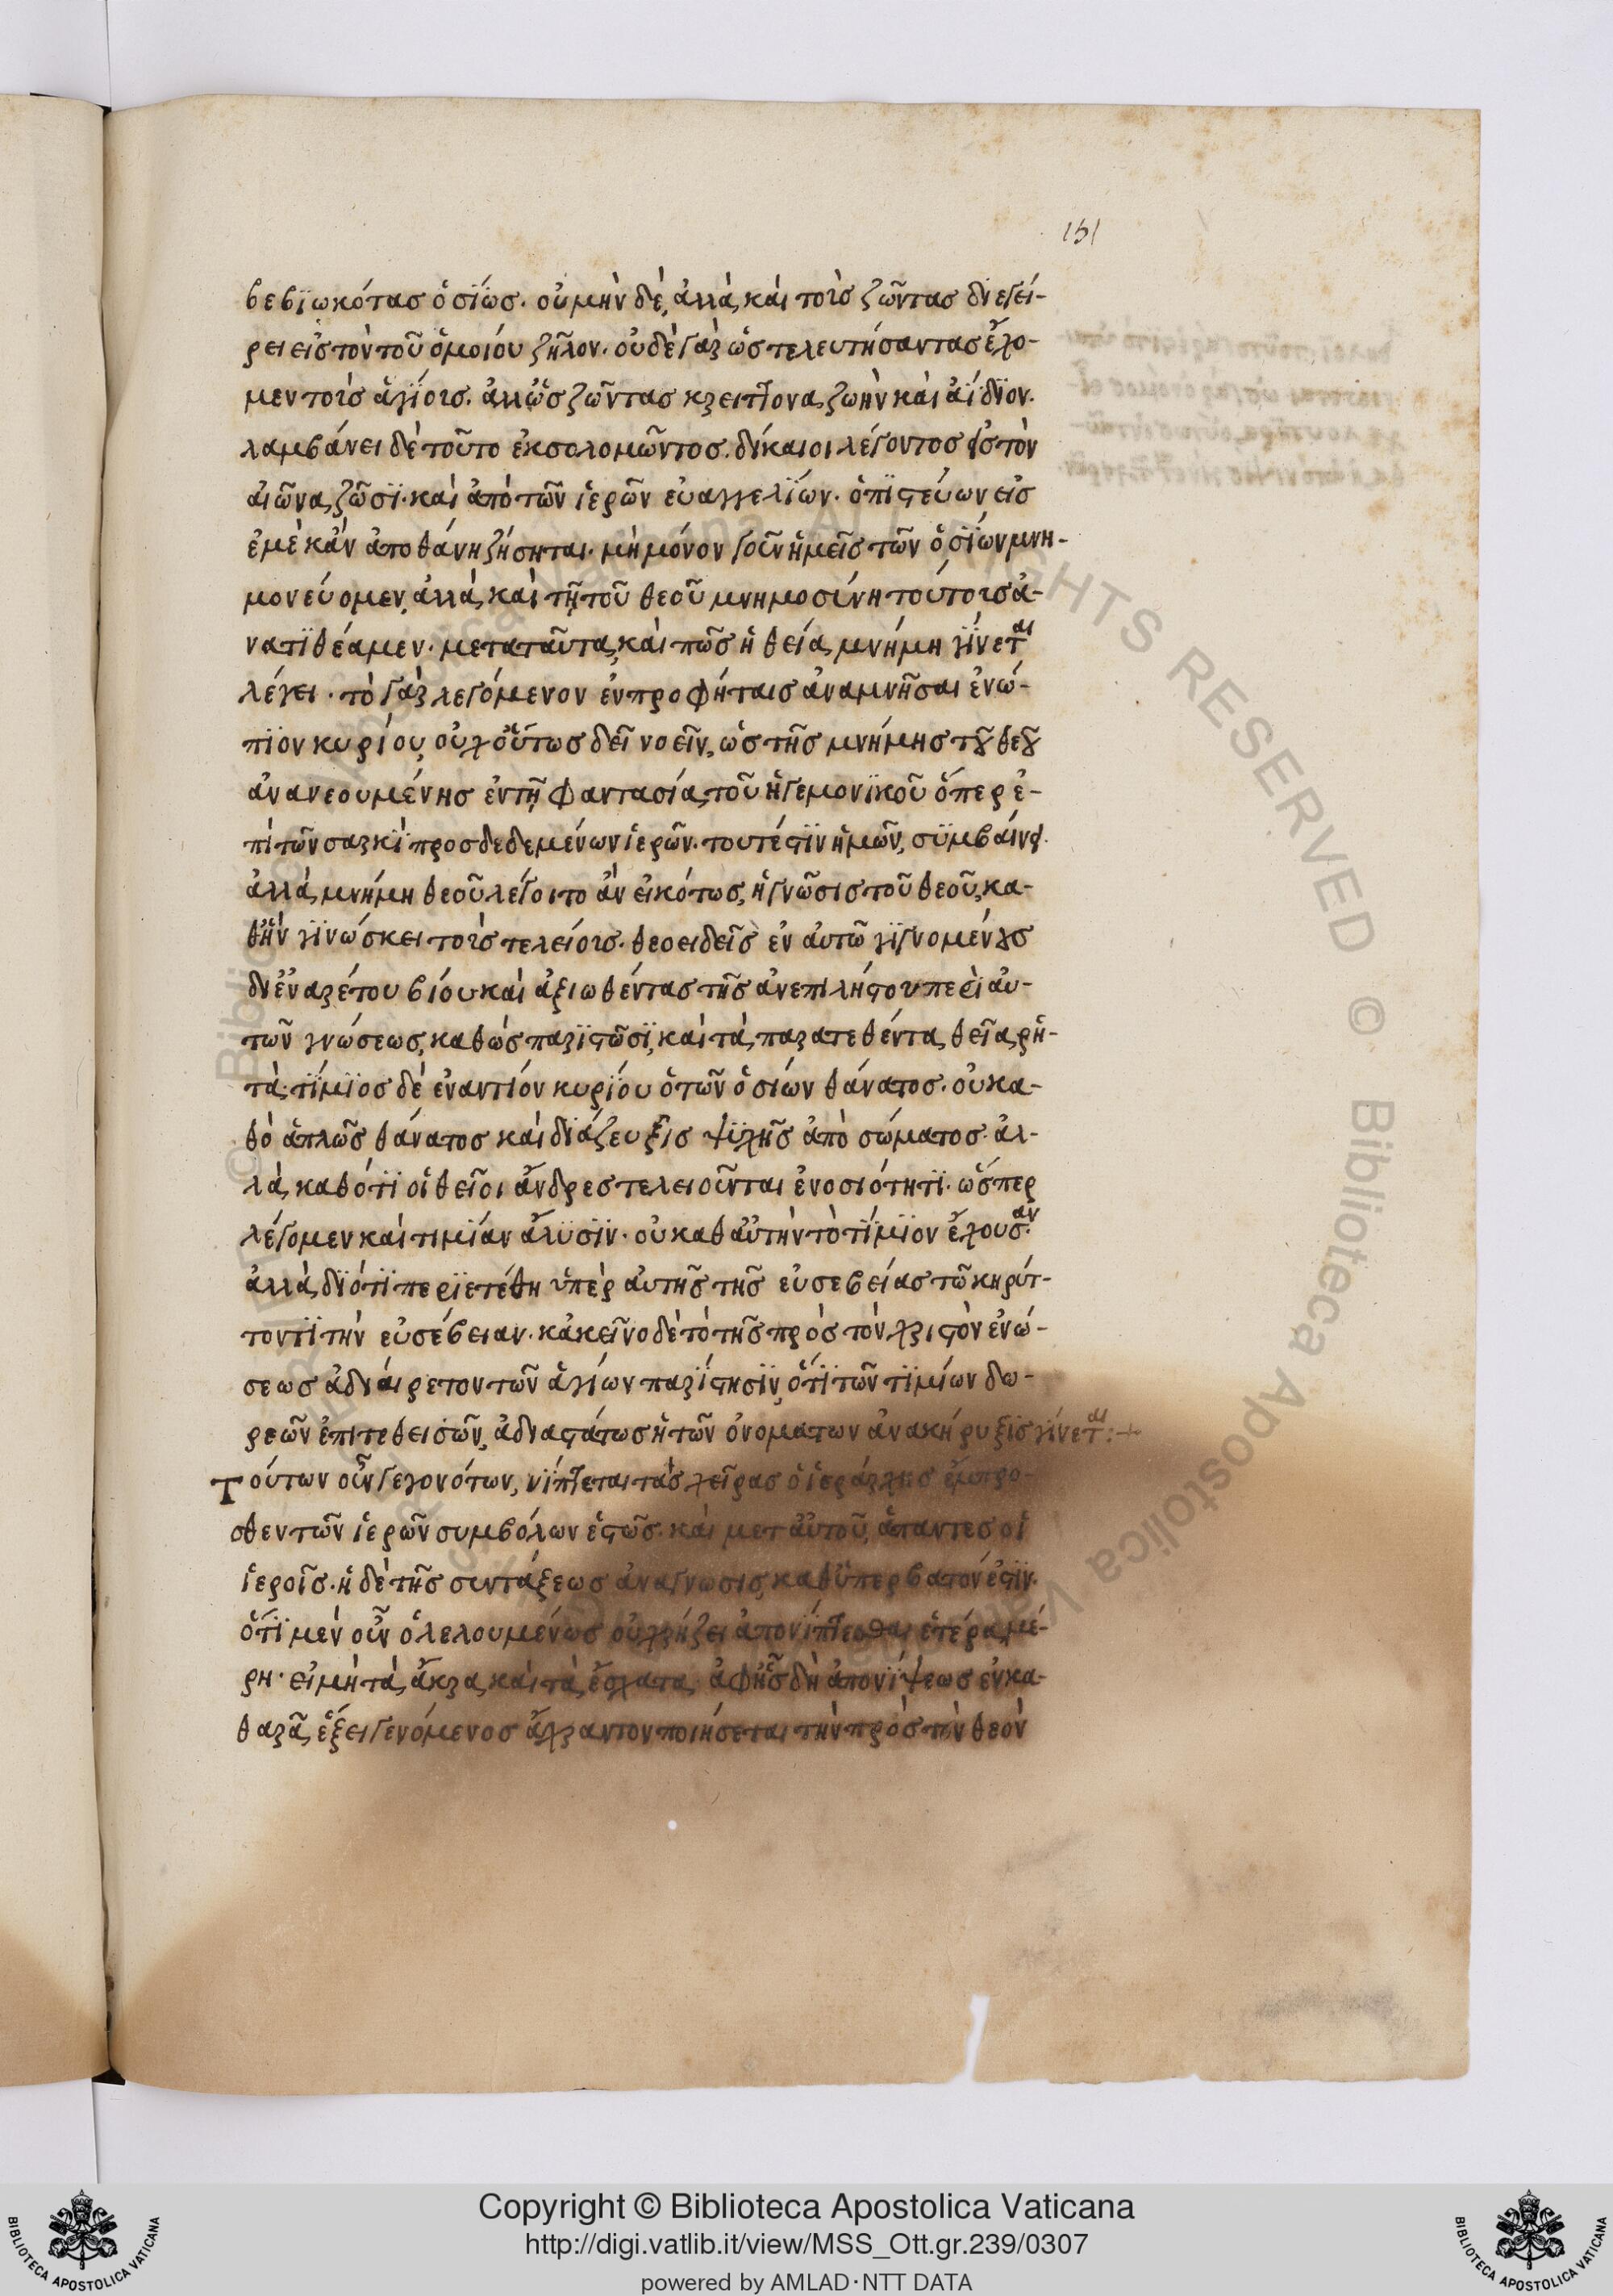 151
βεβϊωκότασ ὁσίωσ. οὐμὴν δὲ, ἀλλὰ καὶ τοὺσ ζῶντασ διεγεί-
ρει εἰς τὸν τοῦ ὁμοίου ζῆλον. οὐδὲ γὰρ ὡς τελευτήσαντασ ἔχο-
μεν τοὺσ ἁγίουσ. ἀλλ' ὡσ ζῶντασ κρείττονα ζωὴν καὶ ἀΐδιον.
λαμβάνει δὲ τοῦτο ἐκ σολομῶντοσ. δίκαιοι λέγοντοσ εἰς τὸν
αἰῶνα ζῶσϊ. καὶ ἀπὸ τῶν ἱερῶν εὐαγγελίων. ὁ πϊστεύων εἰσ
ἐμὲ κἂν ἀποθάνη ζήσηται. μὴ μόνον γοῦν ἡμεῖσ τῶν ὁσίων μνη-
μονεύομεν, ἀλλὰ καὶ τῇ τοῦ θεοῦ μνημοσύνη τούτουσ ἀ-
νατϊθέαμεν. μετὰ ταῦτα καὶ πῶσ ἡ θεία μνήμη γίνεται
λέγει. τὸ γὰρ λεγόμενον ἐν προφήταισ ἀναμνῆσαι ἐνώ-
πϊον κυρίου, οὐχ οὕτωσ δεῖ νοεῖν, ὡς τῆσ μνήμησ τοῦ θεοῦ
ἀνανεουμένησ ἐν τῇ φαντασία τοῦ ἡγεμονϊκοῦ ὅπερ ἐ-
πὶ τῶν σαρκὶ προσδεδεμένων ἱερῶν. τουτέστϊν ἡμῶν, συμβαίνει.
ἀλλὰ μνήμη θεοῦ λέγοιτο ἂν εἰκότωσ, ἡ γνῶσισ τοῦ θεοῦ, κα-
θ' ἣν γϊνώσκει τοὺσ τελείουσ. θεοειδεῖσ ἐν αὐτῶ γϊγνομένουσ
δι' ἐναρέτου βίου καὶ ἀξιωθέντασ τῆσ ἀνεπιλήστου περὶ αὐ-
τῶν γνώσεωσ, καθὼσ παρϊστῶσϊ, καὶ τὰ παρατεθέντα θεῖα ῥη-
τά. τίμϊοσ δὲ ἐναντίον κυρίου ὁ τῶν ὁσίων θάνατοσ. οὐ κα-
θὸ ἁπλῶσ θάνατοσ καὶ διάζευξισ ψυχῆσ ἀπὸ σώματοσ. ἀλ-
λὰ καθότϊ οἱ θεῖοι ἄνδρεσ τελειοῦνται ἐν οσιότητϊ. ὥσπερ
λέγομεν καὶ τιμίαν ἅλυσϊν. οὐ καθ' αὑτὴν τὸ τίμϊον ἔχουσαν.
ἀλλὰ διότϊ περϊετέθη ὑπὲρ αὐτῆσ τῆσ εὐσεβείασ τῶ κηρύτ-
τοντϊ τὴν εὐσέβειαν. κἀκεῖνο δὲ τὸ τῆσ πρὸσ τὸν χριστὸν ἑνώ-
σεωσ ἀδιαίρετον τῶν ἁγίων παρίστησϊν, ὅτϊ τῶν τϊμίων δω-
ρεῶν ἐπιτεθεισῶν, ἀδιαστάτωσ ἡ τῶν ὀνομάτων ἀνακήρυξισ γίνεται:+
Τούτων οὖν γεγονότων, νίπτεται τὰσ χεῖρασ ὁ ἱεράρχησ ἔμπρο-
σθεν τῶν ἱερῶν συμβόλων ἑστῶσ. καὶ μετ' αὐτοῦ, ἅπαντεσ οἱ
ἱεροῖσ. ἡ δὲ τῆσ συντάξεωσ ἀνάγνωσισ, καθ' ὑπερβατόν ἐστϊν.
ὅτϊ μὲν οὖν ὁ λελουμένωσ οὐ χρήζει ἀπονίπτεσθαι ἑτέρα μέ-
ρη. εἰ μὴ τὰ ἄκρα, καὶ τὰ ἔσχατα. ἀφ' ἧσ δὴ ἀπονίψεωσ ἐν κα-
θαρᾶ, ἕξει γενόμενοσ ἄχραντον ποιήσεται τὴν πρὸσ τὸν θεὸν
Copyright © Biblioteca Apostolica Vaticana
http://digi.vatlib.it/view/MSS_Ott.gr.239/0307
powered by AMLAD·NTT DATA
BIBLIOTECA APOSTOLICA VATICANA
BIBLIOTECA APOSTOLICA VATICANA